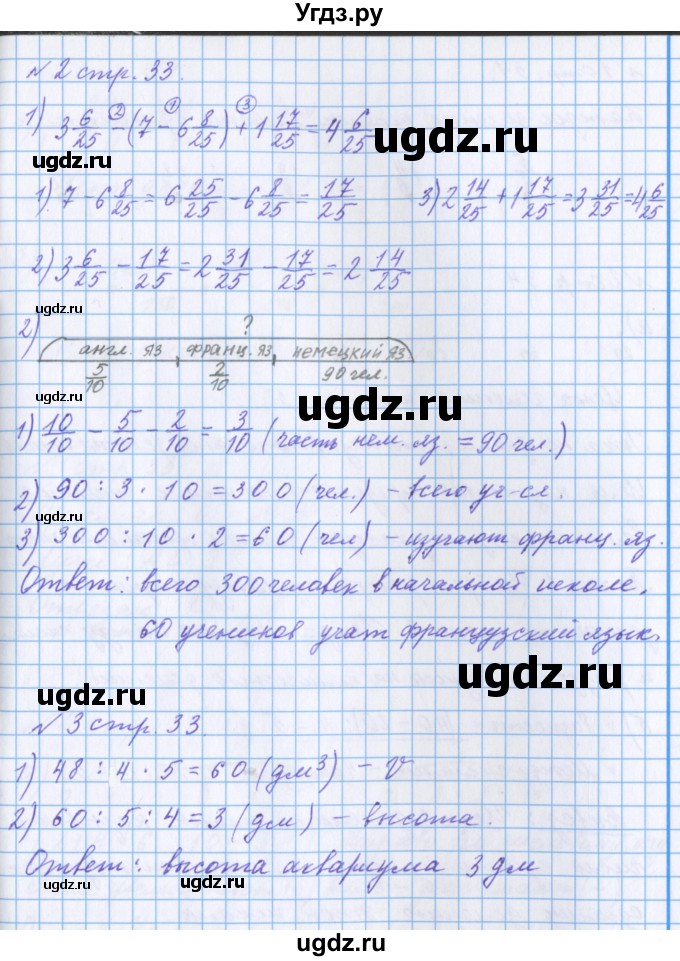 Угдз.ру
№ 2 стр. 33.
1) 3 6/25 ② – (7 ① – 6 8/25) ③ + 1 17/25 = 4 6/25
ugdz.ru
1). 7 – 6 8/25 = 6 25/25 – 6 8/25 = 17/25   3) 2 14/25 + 1 17/25 = 3 31/25 = 4 6/25
ugdz.ru
2) 3 6/25 – 17/25 = 2 31/25 – 17/25 = 2 14/25
ugdz.ru ugdz.ru
2) ?
англ. яз франц. яз немецкий яз
5/10 2/10 90 чел.
ugdz.ru ugdz.ru
1) 10/10 – 5/10 – 2/10 = 3/10 (часть нем. яз. = 90 чел.)
2) 90 : 3 · 10 = 300 (чел.) – всего уч-ся.
ugdz.ru ugdz.ru
3) 300 : 10 · 2 = 60 (чел) – изучают франц. яз.
Ответ: всего 300 человек в начальной школе,
60 учеников учат французский язык.
ugdz.ru
ugdz.ru
№ 3 стр. 33
1) 48 : 4 · 5 = 60 (дм³) – V
2) 60 : 5 : 4 = 3 (дм) – высота.
Ответ: высота аквариума 3 дм
ugdz.ru ugdz.ru
ugdz.ru